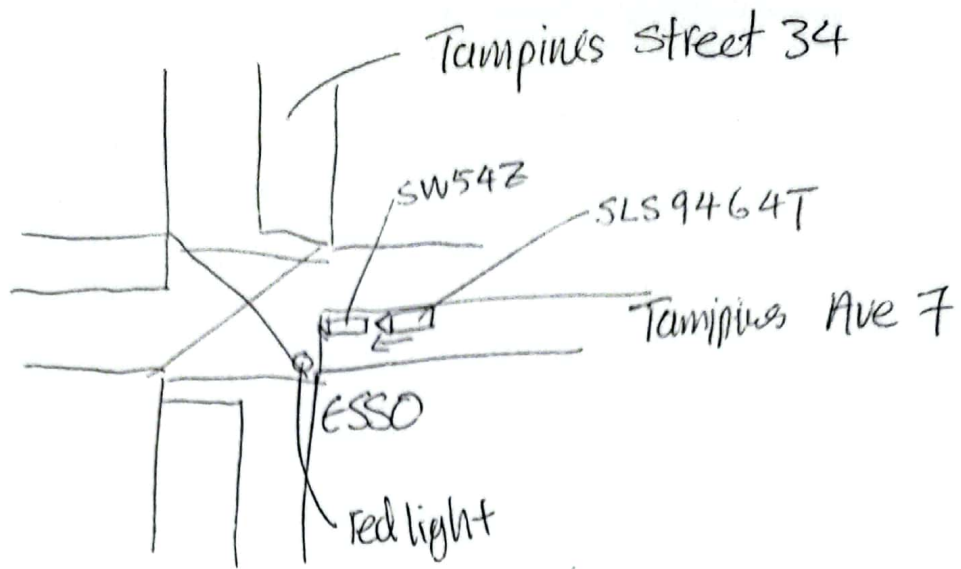 Tampines Street 34
SW54Z
SLS9464T
Tampines Ave 7
ESSO
red light